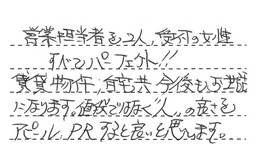 営業担当者も2人、受付の女性
すべてパーフェクト!!
賃貸物件、自宅共 今後もお世話
になります。価格ではなく“人„の良さを
アピール、PRすると良いと思います。